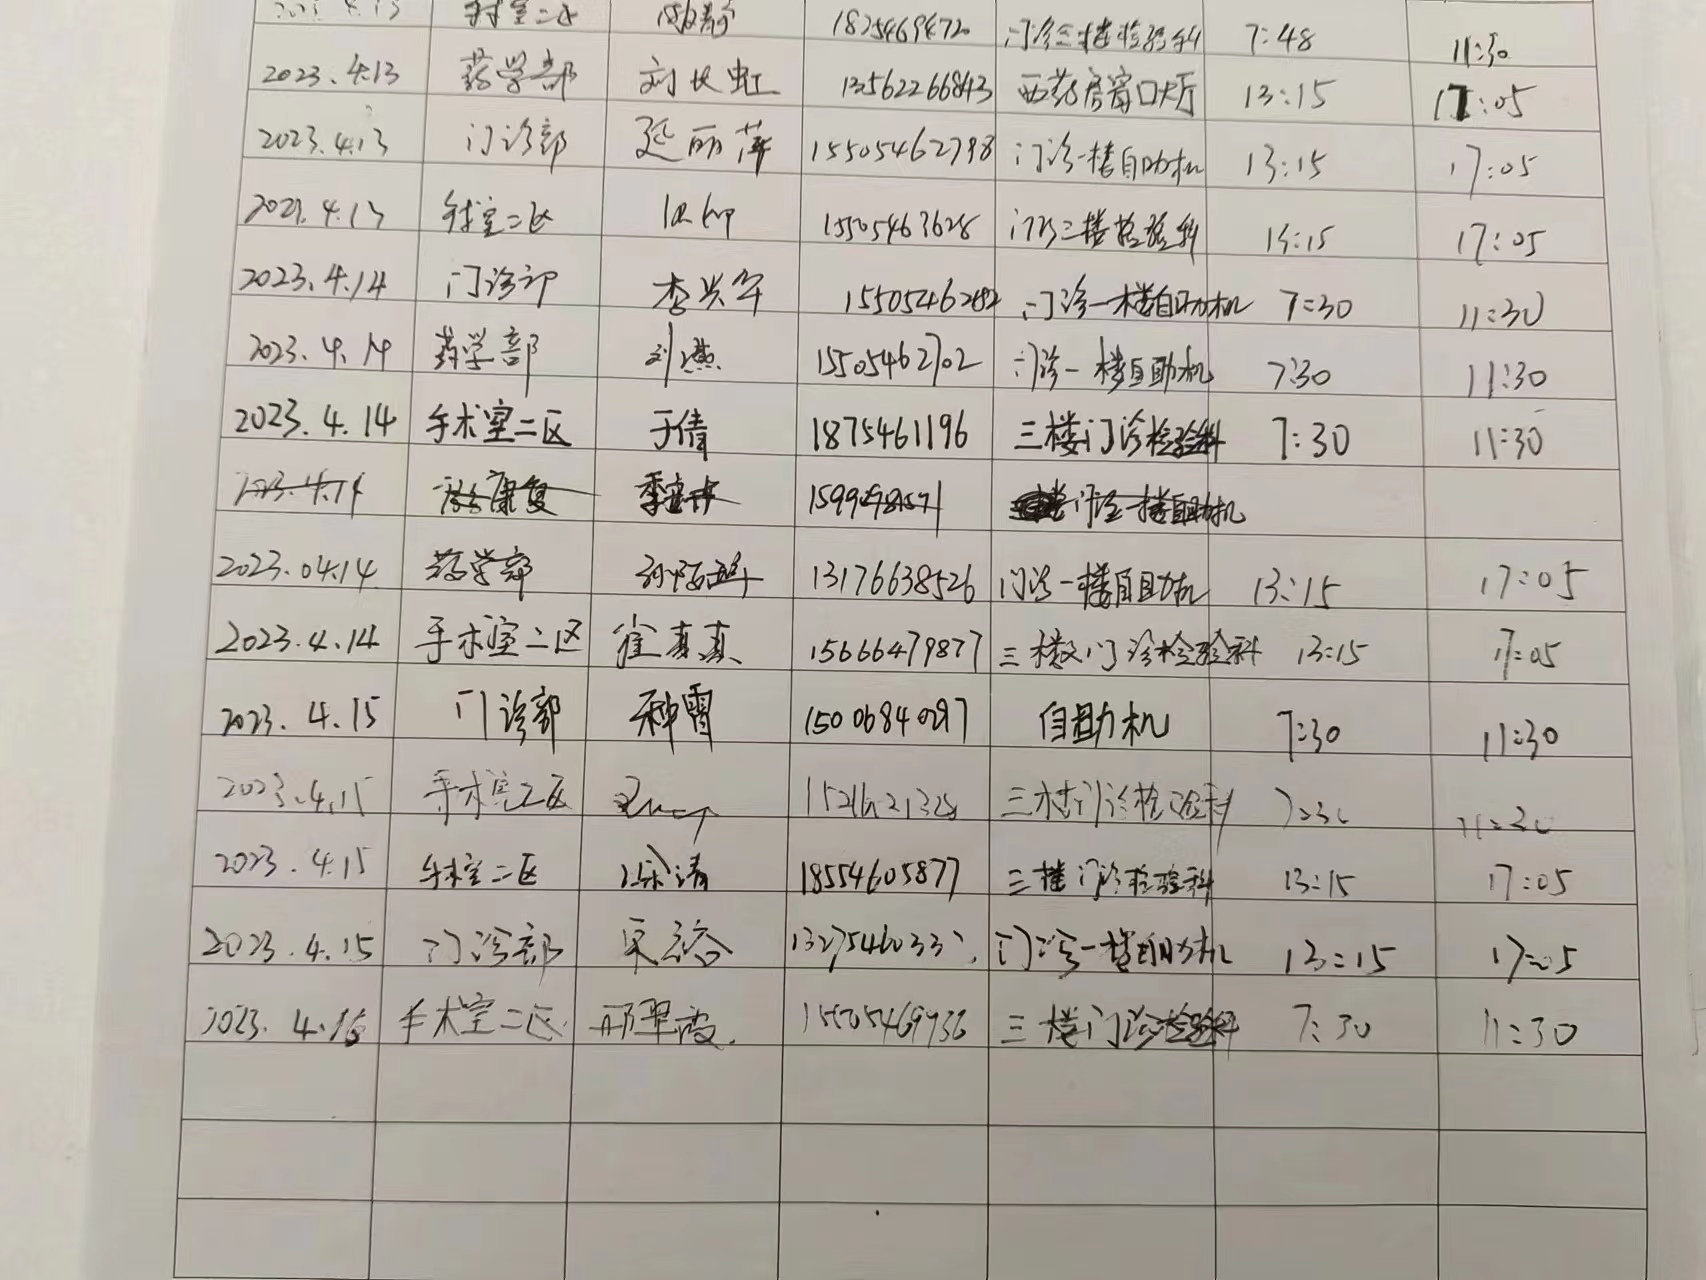 手术室二区 18254694720 门诊三楼检验科 7:48 11:30
2023.4.13 药学部 刘长虹 13562266843 西药房窗口大厅 13:15 17:05
2023.4.13 门诊部 延丽萍 15505462798 门诊一楼自助机 13:15 17:05
2023.4.13 手术室二区 15505463628 门诊三楼检验科 13:15 17:05
2023.4.14 门诊部 李兴军 1550546282 门诊一楼自助机 7:30 11:30
2023.4.14 药学部 刘燕 15505462702 门诊一楼自助机 7:30 11:30
2023.4.14 手术室二区 于倩 1875461196 三楼门诊检验科 7:30 11:30
2023.4.14 康复 门诊一楼自助机
2023.04.14 药学部 13176638526 门诊一楼自助机 13:15 17:05
2023.4.14 手术室二区 崔真真 15666479877 三楼门诊检验科 13:15 17:05
2023.4.15 门诊部 种霄 15006840297 自助机 7:30 11:30
2023.4.15 手术室二区 三楼门诊检验科 7:30 11:30
2023.4.15 手术室二区 18554605877 三楼门诊检验科 13:15 17:05
2023.4.15 门诊部 门诊一楼自助机 13:15 17:05
2023.4.16 手术室二区 邢翠霞 15505469736 三楼门诊检验科 7:30 11:30